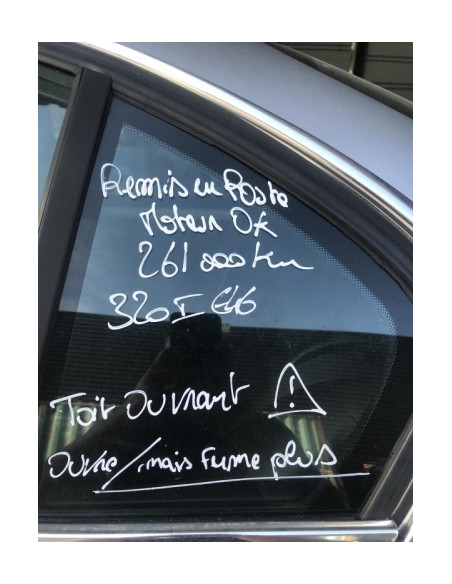 Remis en Poste
Moteur Ok
261 000 km
320 I E46
Toit ouvrant !
ouvre / mais Fume plus